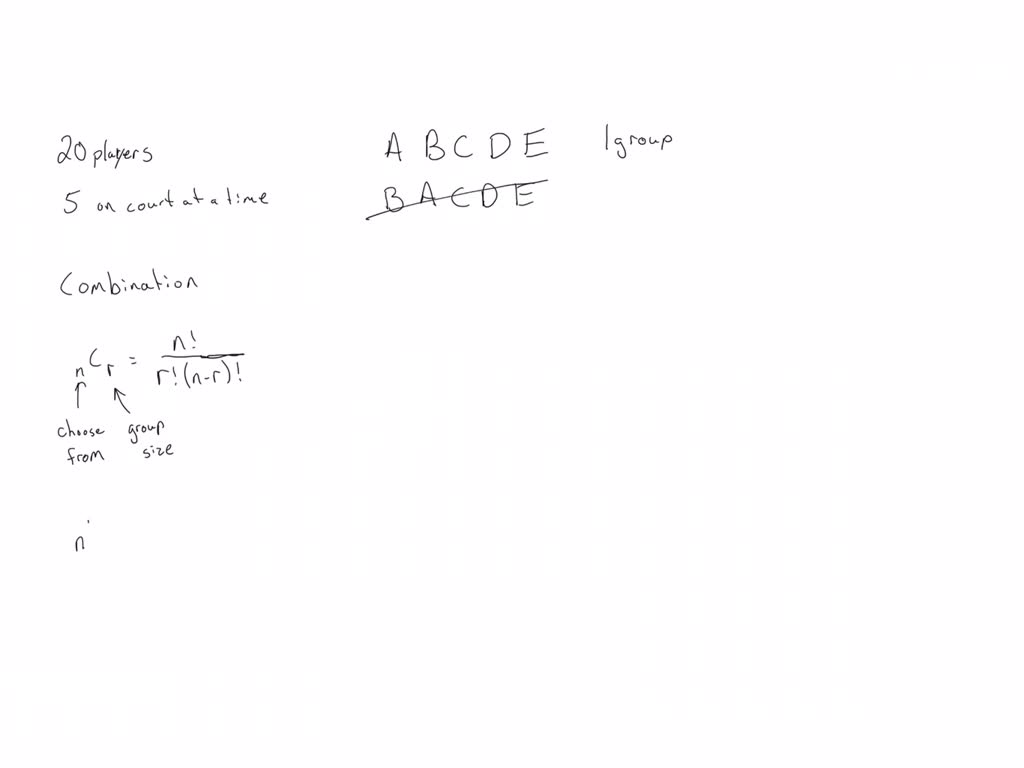 20 players
5 on court at a time
A B C D E 1 group
B A C D E
Combination
nCr = n! / r!(n-r)!
choose from
group size
n